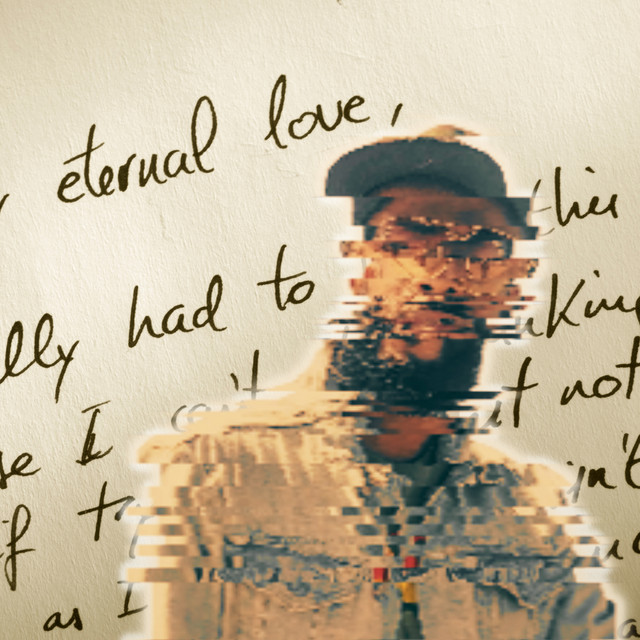 eternal love,
lly had to this
se I can't king
if t not
as I n't